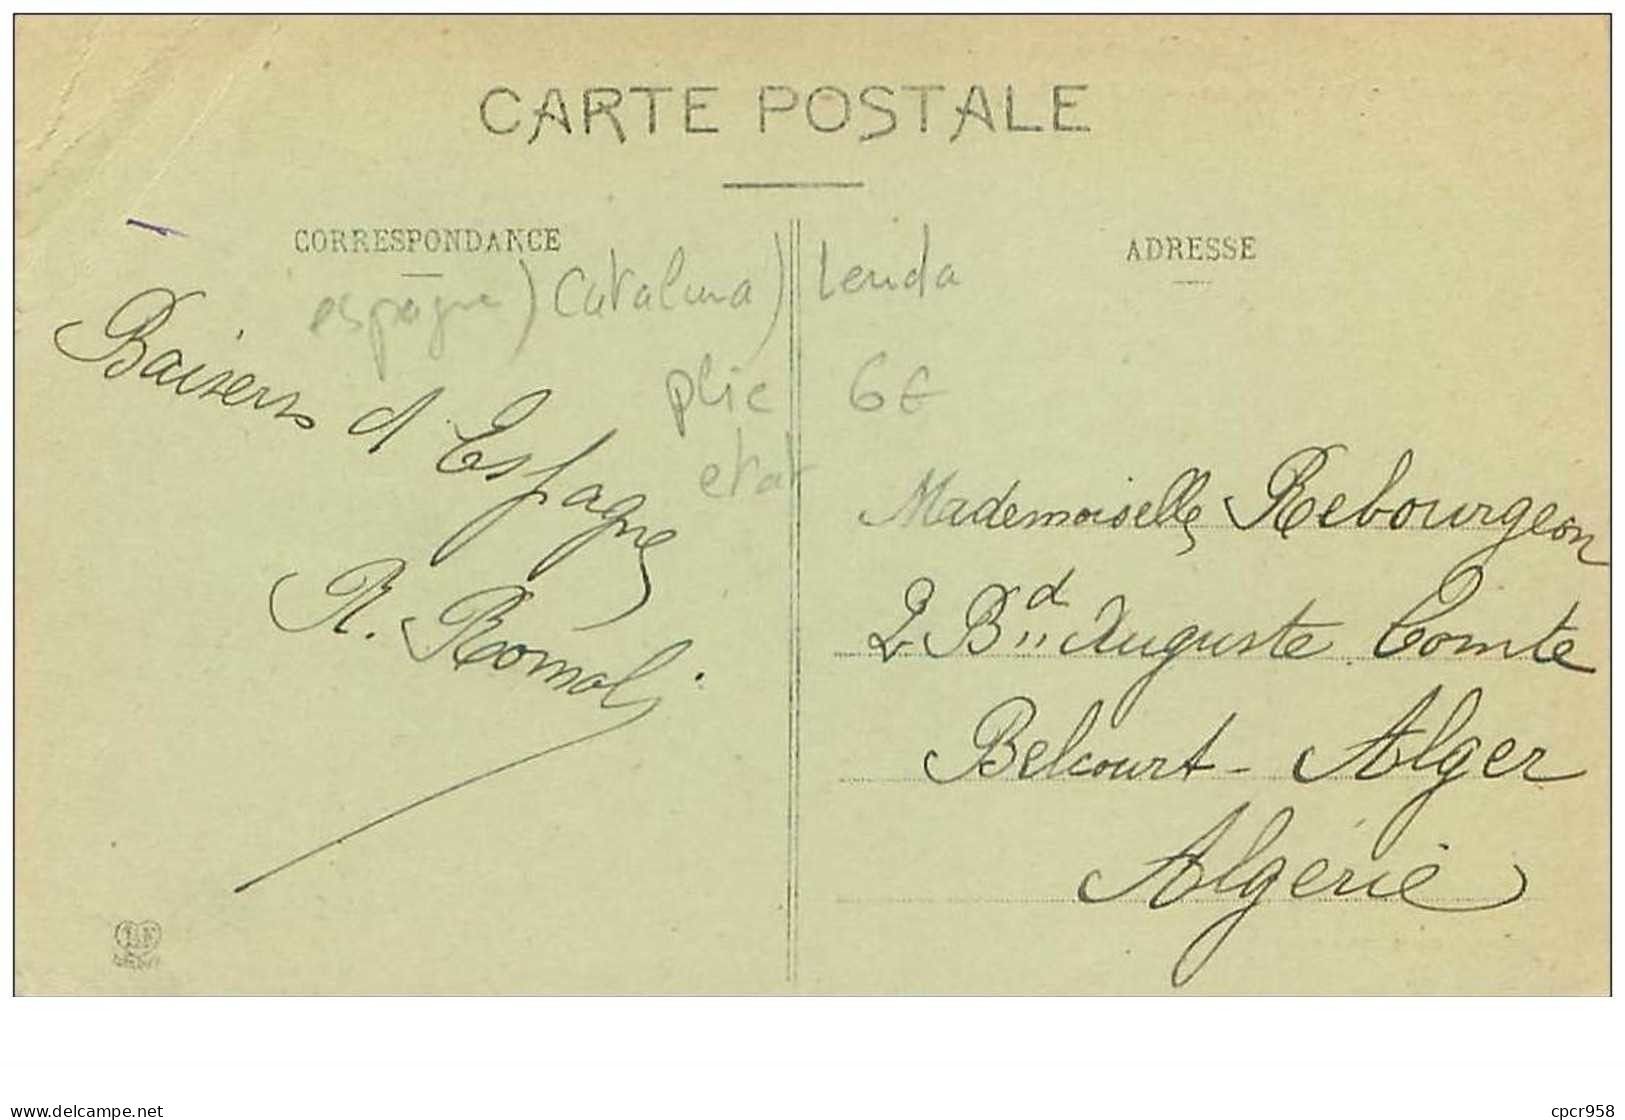 CARTE POSTALE
CORRESPONDANCE
ADRESSE
espagne) Cataluna) Lerida
plie 6€
etat
Baisers d'Espagne
R. Romoli
Mademoiselle Rebourgeon
2 Bd Auguste Comte
Belcourt - Alger
Algérie
www.delcampe.net
cpcr958